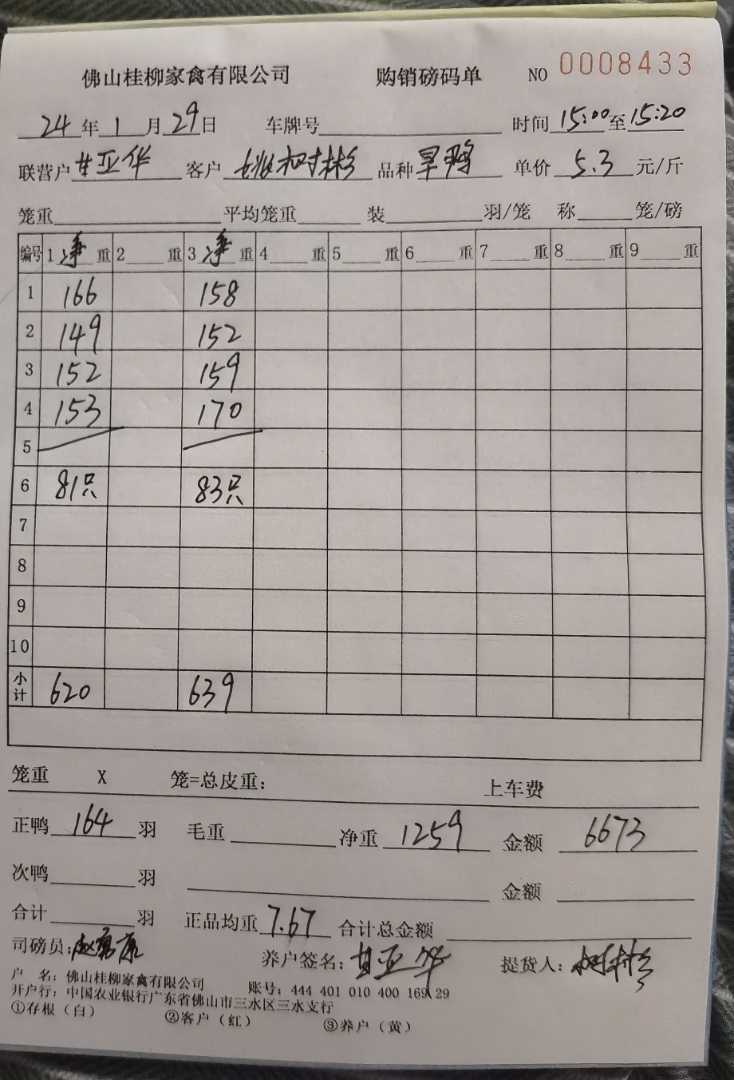 佛山桂柳家禽有限公司 购销磅码单 NO 0008433
24年1月29日 车牌号 时间15:00至15:20
联营户甘亚华 客户姚树彬 品种旱鸭 单价5.3元/斤
笼重 平均笼重 装 羽/笼 称 笼/磅
编号 1净重 2 重 3净重 4 重 5 重 6 重 7 重 8 重 9 重
1 166 158
2 149 152
3 152 159
4 153 170
5
6 81只 83只
7
8
9
10
小计 620 639
笼重 X 笼=总皮重: 上车费
正鸭164羽 毛重 净重1259 金额6673
次鸭 羽 金额
合计 羽 正品均重7.67 合计总金额
司磅员: 养户签名:甘亚华 提货人:树彬
户 名: 佛山桂柳家禽有限公司 账号: 444 401 010 400 169 29
开户行: 中国农业银行广东省佛山市三水区三水支行
①存根(白) ②客户(红) ③养户(黄)